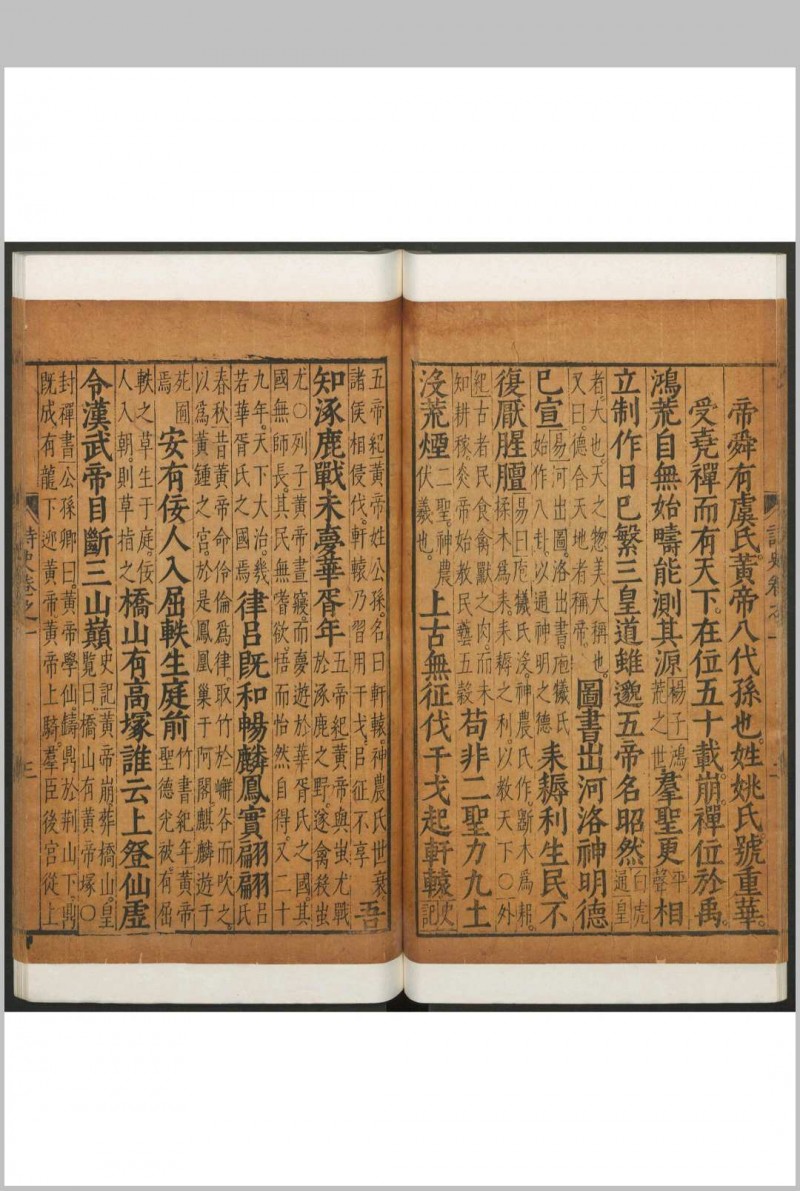 帝舜有虞氏黃帝八代孫也姓姚氏號重華
受堯禪而有天下在位五十載崩禪位於禹
鴻荒自無始疇能測其源
楊子鴻
荒之世
羣聖更
平
聲
相
立制作日已繁三皇道雖邈五帝名昭然
白虎
通皇
者大也天之惣美大稱也
又曰德合天地者稱帝
圖書出河洛神明德
已宣
易河出圖洛出書庖犧氏
始作八卦以通神明之德
耒耨利生民不
復厭腥膻
易曰庖犧氏沒神農氏作斲木為耜
揉木為耒耒耨之利以教天下○外
紀古者民食禽獸之肉而未
知耕稼炎帝始教民藝五穀
苟非二聖力九土
沒荒煙
二聖神農
伏羲也
上古無征伐干戈起軒轅
史
記
五帝紀黃帝姓公孫名曰軒轅神農氏世衰
諸侯相侵伐軒轅乃習用干戈㠯征不享
吾
知涿鹿戰未夢華胥年
五帝紀黃帝與蚩尤戰
於涿鹿之野遂禽殺蚩
尤○列子黃帝晝寢而夢遊於華胥氏之國其
國無師長其民無嗜欲悟而怡然自得又二十
九年天下大治幾
若華胥氏之國焉
律呂旣和暢麟鳳實翩翩
呂氏
春秋昔黃帝命伶倫為律取竹於嶰谷而吹之
以為黃鍾之宮於是鳳凰巢于阿閣麒麟遊于
苑囿
焉
安有佞人入屈軼生庭前
竹書紀年黃帝
聖德光被有屈
軼之草生于庭佞
人入朝則草指之
橋山有高塚誰云上登仙虛
令漢武帝目斷三山巔
史記黃帝崩葬橋山皇
覽曰橋山有黃帝塚○
封禪書公孫卿曰黃帝學仙鑄鼎於荆山下鼎
旣成有龍下迎黃帝黃帝上騎羣臣後宮從上
詩史卷之一
三